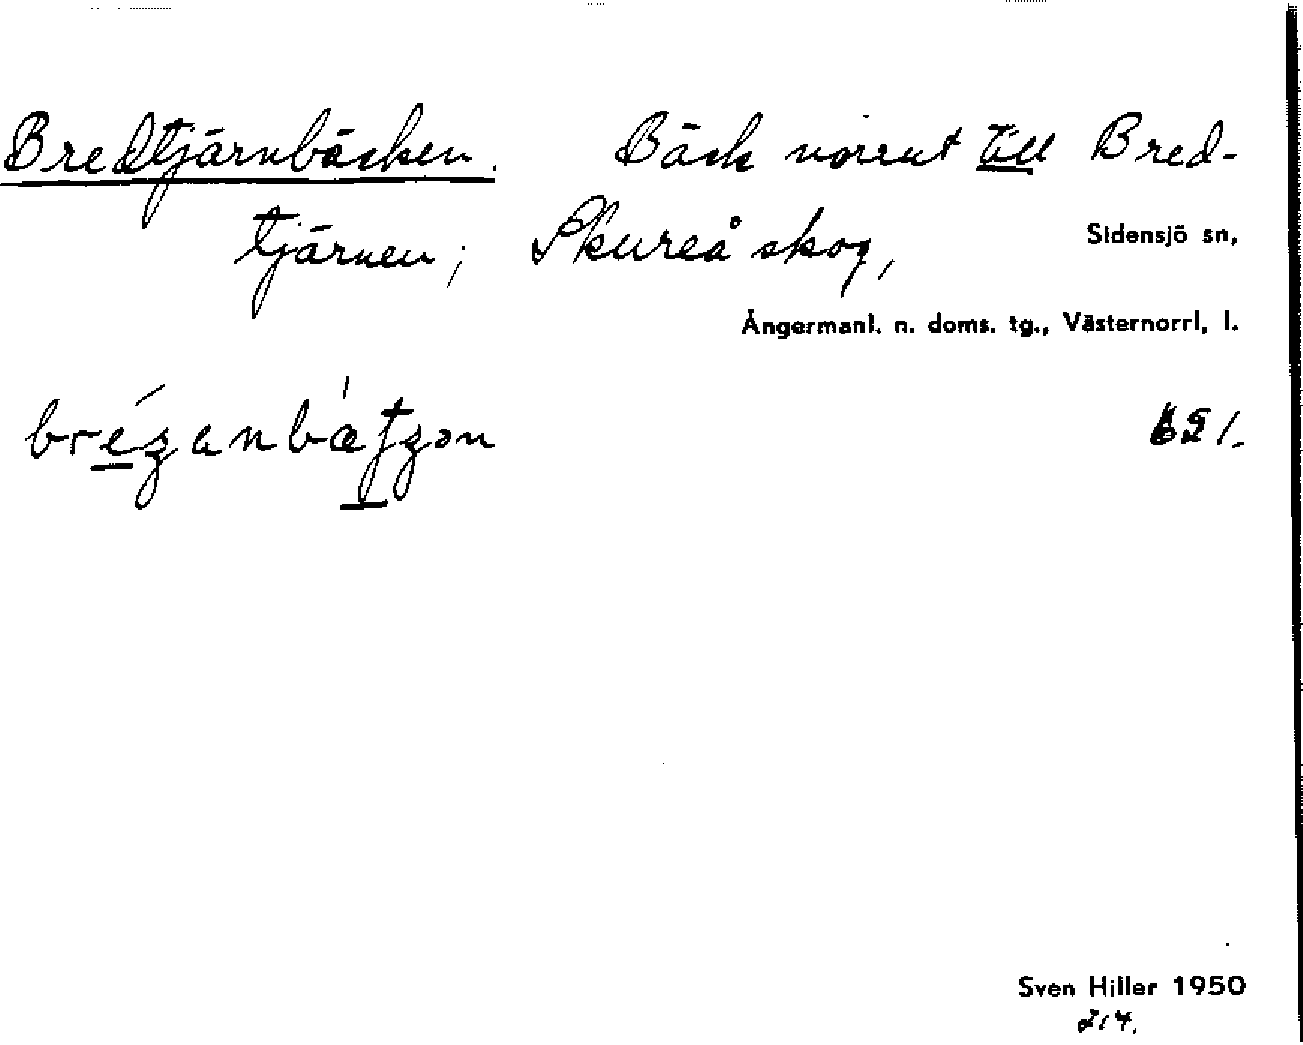 Bredtjärnbäcken. Bäck norrut till Bred-
tjärnen; Skureå skog, Sidensjö sn,
Ångermanl. n. doms. tg., Västernorrl. l.
Sven Hiller 1950
214.